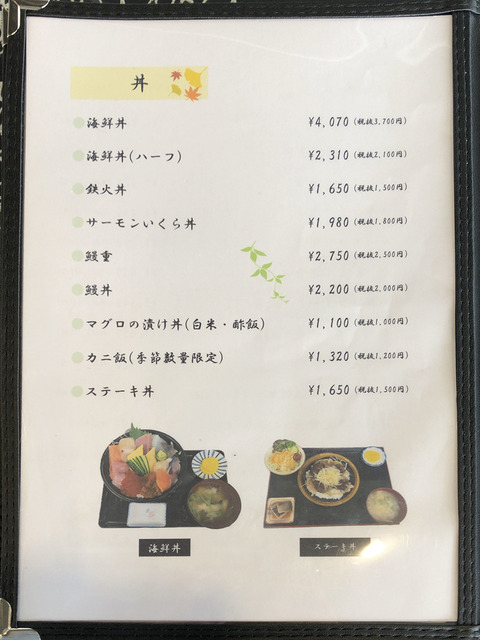 丼
海鮮丼 ¥4,070(税抜3,700円)
海鮮丼(ハーフ) ¥2,310(税抜2,100円)
鉄火丼 ¥1,650(税抜1,500円)
サーモンいくら丼 ¥1,980(税抜1,800円)
鰻重 ¥2,750(税抜2,500円)
鰻丼 ¥2,200(税抜2,000円)
マグロの漬け丼(白米・酢飯) ¥1,100(税抜1,000円)
カニ飯(季節数量限定) ¥1,320(税抜1,200円)
ステーキ丼 ¥1,650(税抜1,500円)
海鮮丼
ステーキ丼